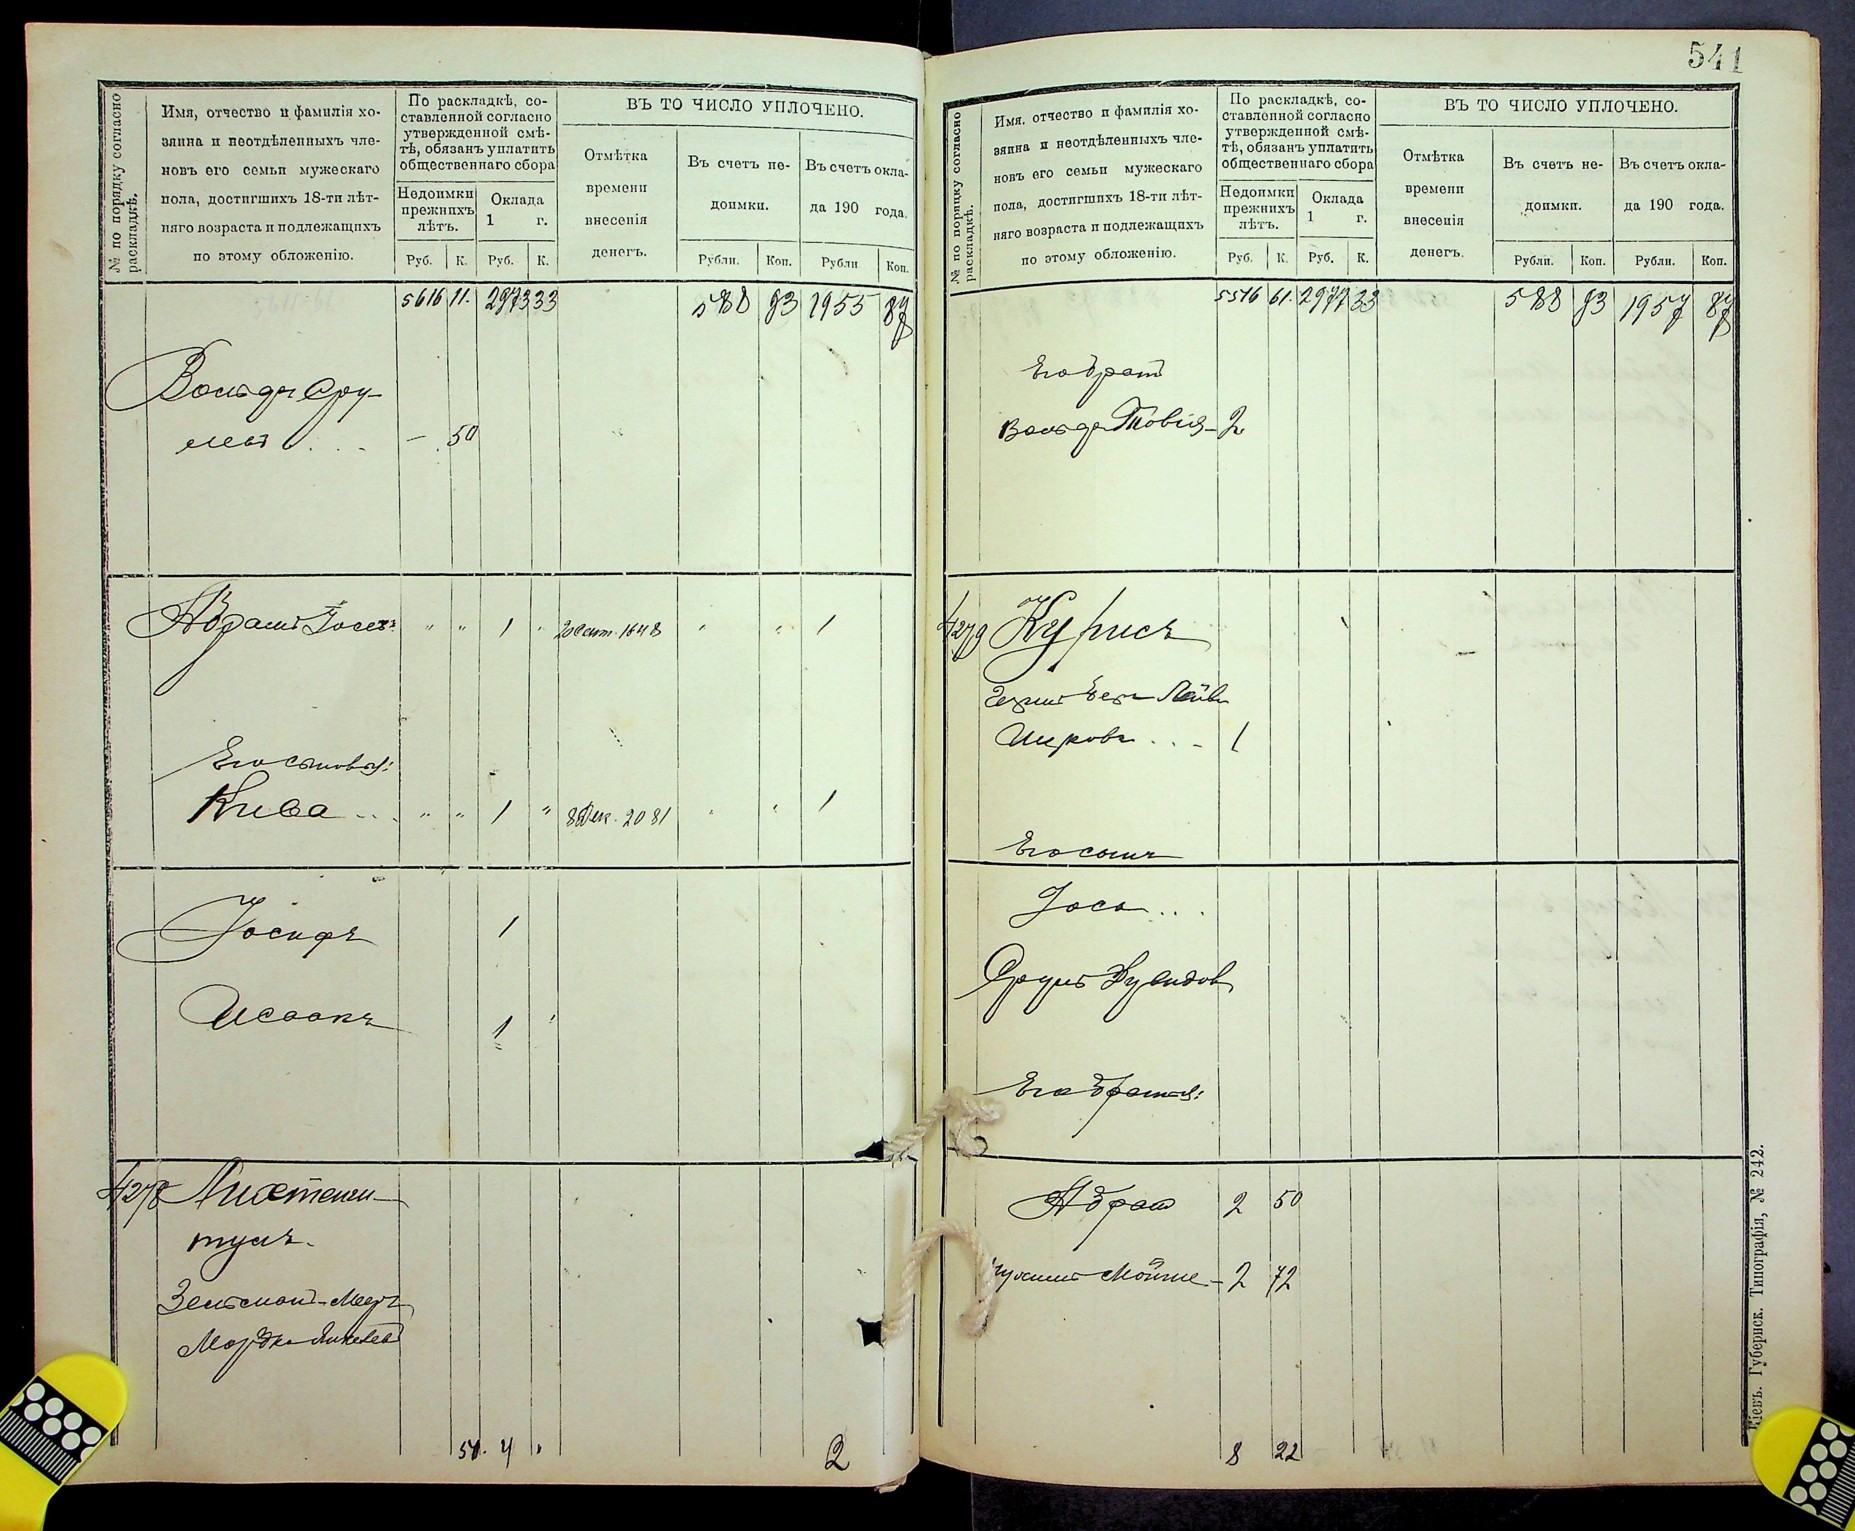 № по порядку согласно раскладкѣ.
Имя, отчество и фамилія хо-
зяина и неотдѣленныхъ чле-
новъ его семьи мужескаго
пола, достигшихъ 18-ти лѣт-
няго возраста и подлежащихъ
по этому обложенію.
По раскладкѣ, со-
ставленной согласно
утвержденной смѣ-
тѣ, обязанъ уплатить
общественнаго сбора
Недоимки
прежнихъ
лѣтъ.
Оклада
1 г.
Руб. К. Руб. К.
ВЪ ТО ЧИСЛО УПЛОЧЕНО.
Отмѣтка
времени
внесенія
денегъ.
Въ счетъ не-
доимки.
Рубли. Коп.
Въ счетъ окла-
да 190 года.
Рубли Коп.
5616 11. 2973 33 588 93 1955 87
Вольдъ Сру-
- 50
Абрамъ Іосевъ " " 1 " 20 Сент. 1648 " " 1
Его сыновья:
Кива " " 1 " 8 Дек. 2081 " " 1
Іосифъ 1
Исаакъ 1
4278 Лихтен
Зельманъ-Мееръ
Мордко
54. 4 2
541
№ по порядку согласно раскладкѣ.
Имя, отчество и фамилія хо-
зяина и неотдѣленныхъ чле-
новъ его семьи мужескаго
пола, достигшихъ 18-ти лѣт-
няго возраста и подлежащихъ
по этому обложенію.
По раскладкѣ, со-
ставленной согласно
утвержденной смѣ-
тѣ, обязанъ уплатить
общественнаго сбора
Недоимки
прежнихъ
лѣтъ.
Оклада
1 г.
Руб. К. Руб. К.
ВЪ ТО ЧИСЛО УПЛОЧЕНО.
Отмѣтка
времени
внесенія
денегъ.
Въ счетъ не-
доимки.
Рубли. Коп.
Въ счетъ окла-
да 190 года.
Рубли. Коп.
5516 61. 2977 33 588 93 1957 87
Его братъ
Вольдъ Товія - 2
4279 Курисъ
Лейб
Ицковъ . . - 1
Его сынъ
Іось . . .
Сруль Дувидов
Его братья:
Абрам 2 50
Мойше - 2 72
8 22
Кіевъ. Губернск. Типографія, № 242.